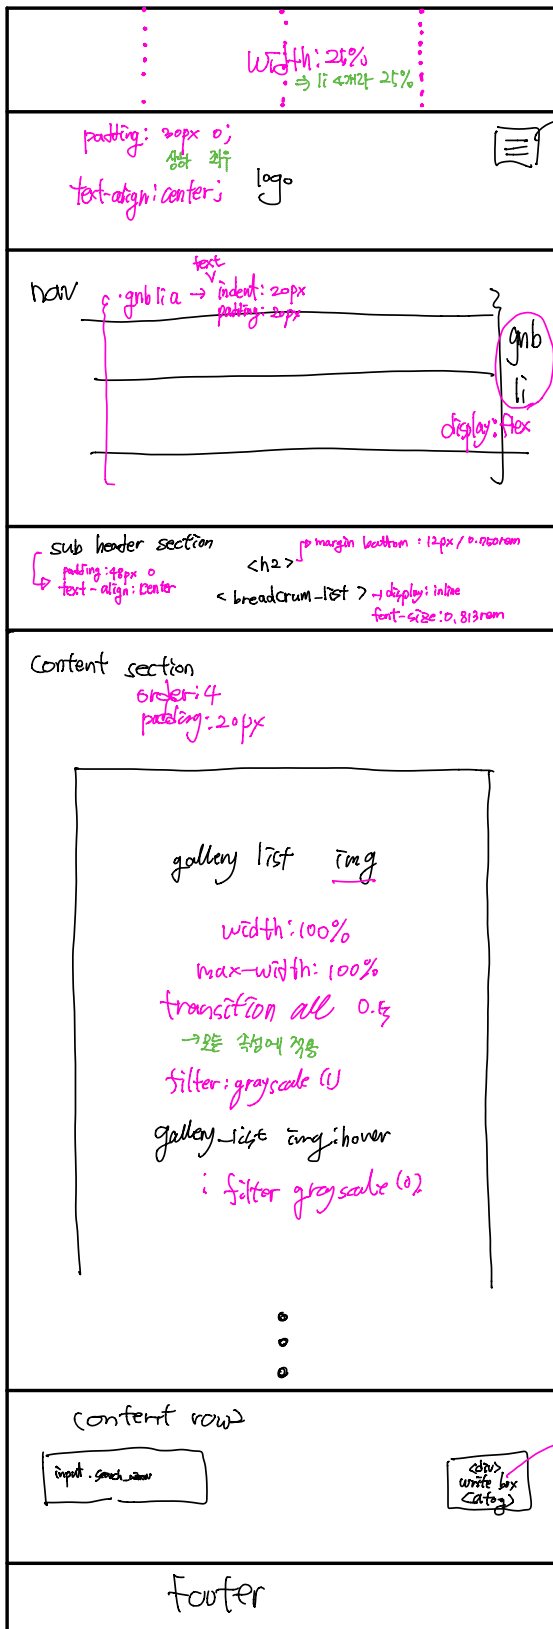 width: 25%
⇒ li 4개라 25%
padding: 20px 0;
상하 좌우
text-align: center;
logo
nav
text
.gnb li a → indent: 20px
padding: 20px
gnb
li
display: flex
sub header section
padding: 48px 0
text-align: center
<h2>
margin bottom : 12px / 0.750rem
<breadcrum_list>
→ display: inline
font-size: 0.813rem
content section
order: 4
padding: 20px
gallery list img
width: 100%
max-width: 100%
transition all 0.5
→ 모든 속성에 적용
filter: grayscale (1)
gallery_list img:hover
: filter grayscale (0)
content row2
input .search_
<div>
write box
<a tag>
footer